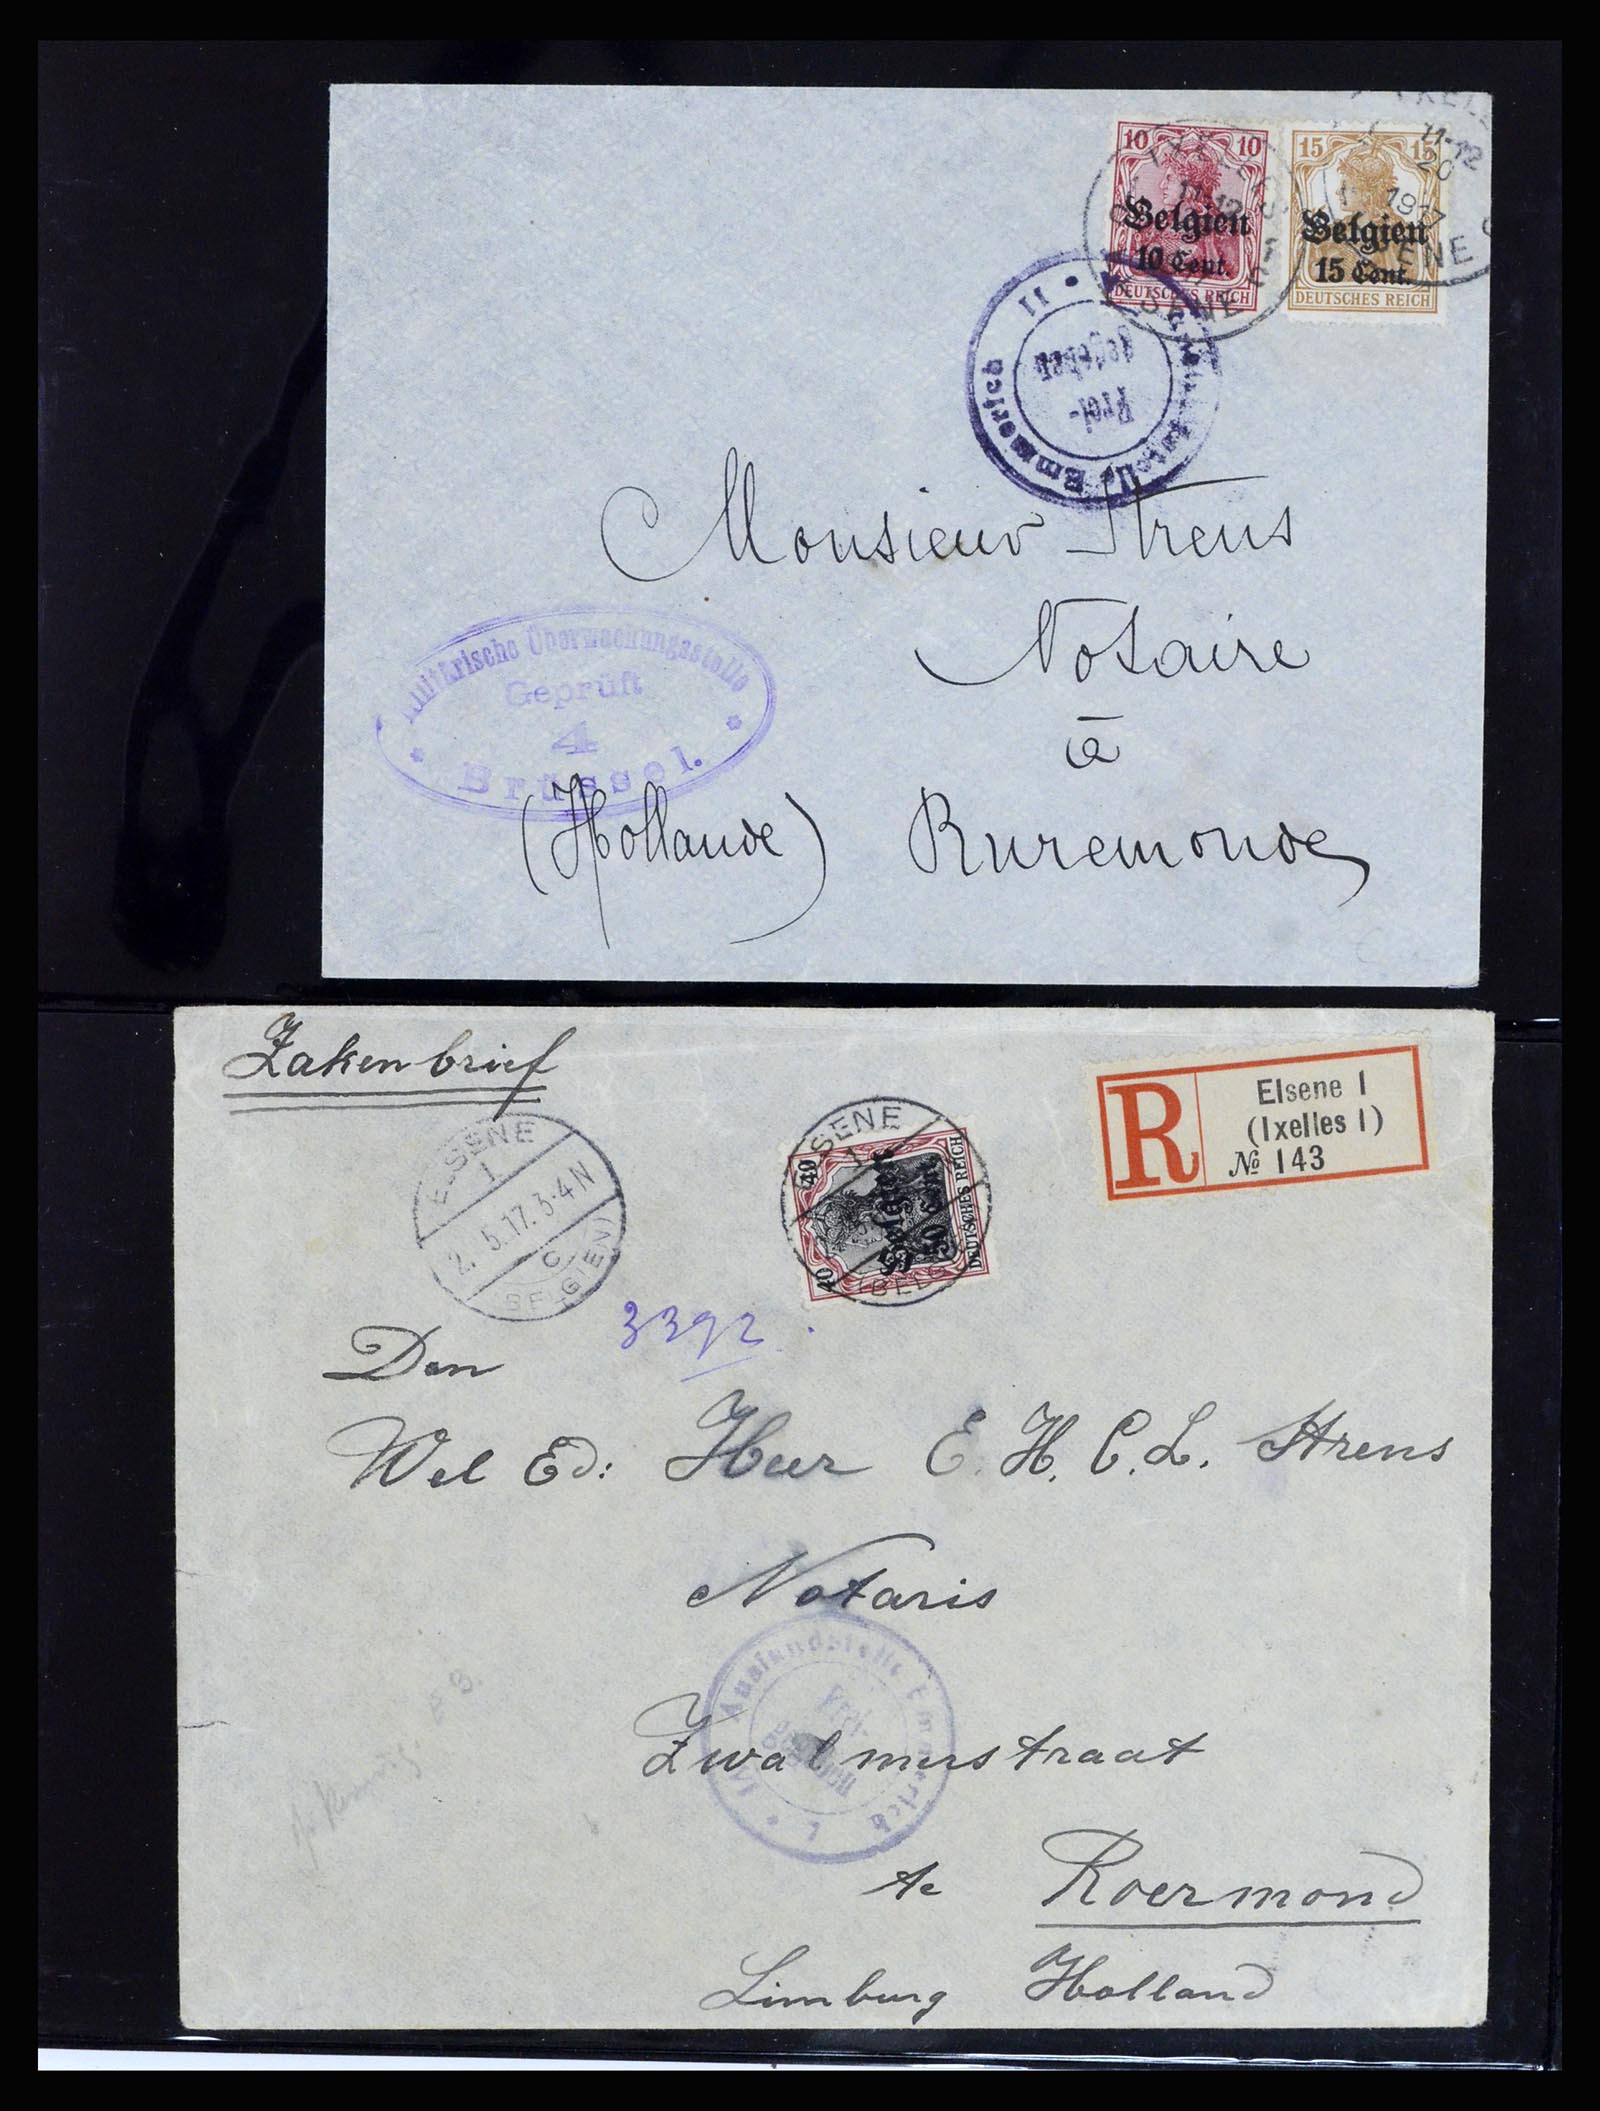 10 10
Belgien
10 Cent.
DEUTSCHES REICH
15 15
Belgien
15 Cent.
DEUTSCHES REICH
11-12
20
1917
II
Emmerich
Frei-
gegeben
Monsieur Strens
Notaire
à
(Hollande) Ruremonde
Militärische Überwachungsstelle
Geprüft
4
Brüssel.
Zakenbrief
ELSENE
1
2. 5.17. 3-4 N
c
(BELGIEN)
ELSENE
1
40 40
Belgien
50 Cent.
DEUTSCHES REICH
R
Elsene 1
(Ixelles 1)
№ 143
3392
Den
Wel Ed: Heer E. H. C. L. Strens
Notaris
Auslandstelle Emmerich
Frei-
gegeben
Zwalmerstraat
te Roermond
Limburg Holland